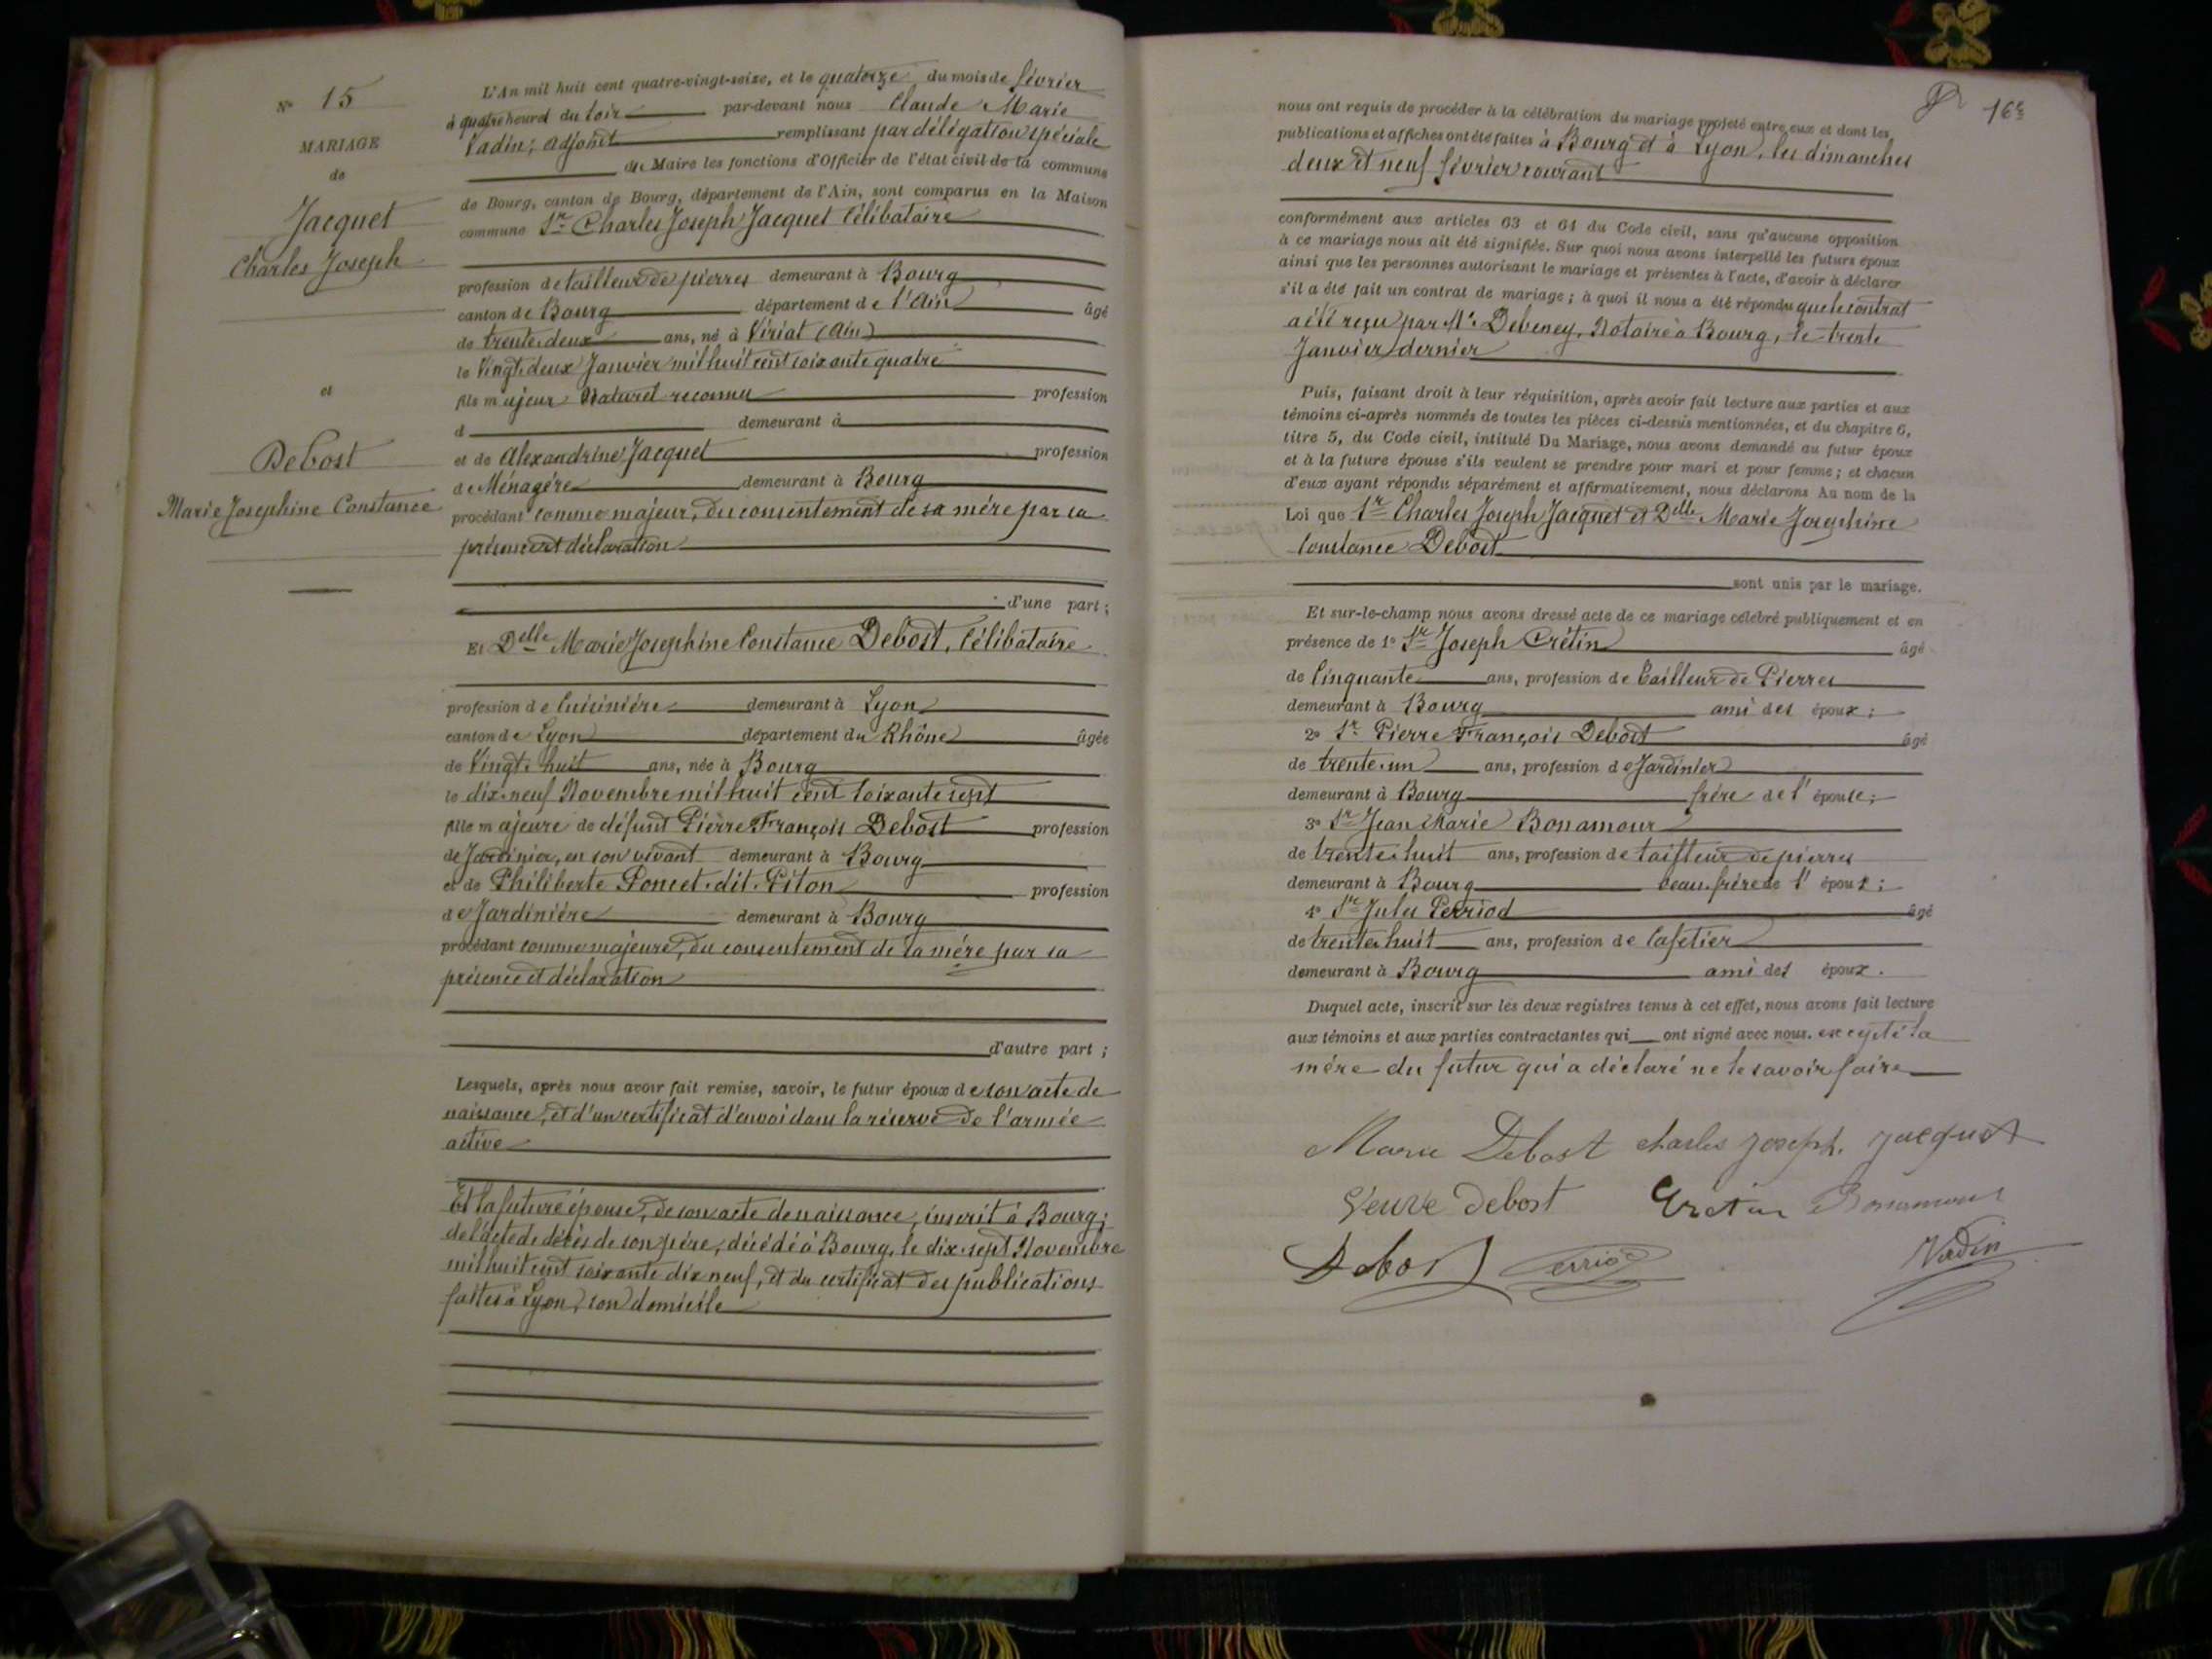 N° 15
MARIAGE
de
Jacquet
Charles Joseph
et
Debost
Marie Josephine Constance
L'An mil huit cent quatre-vingt-seize, et le quatorze du mois de février
à quatre heures du soir par-devant nous Claude Marie
Vadin, adjoint remplissant par délégation spéciale
du Maire les fonctions d'Officier de l'état civil de la commune
de Bourg, canton de Bourg, département de l'Ain, sont comparus en la Maison
commune Sr Charles Joseph Jacquet Célibataire
profession de tailleur de pierres demeurant à Bourg
canton de Bourg département de l'Ain âgé
de trente-deux ans, né à Viriat (Ain)
le vingt-deux Janvier mil huit cent soixante quatre
fils majeur Naturel reconnu profession
d demeurant à
et de Alexandrine Jacquet profession
de Ménagère demeurant à Bourg
procédant comme majeur, du consentement de sa mère par sa
présence et déclaration
d'une part;
Et Delle Marie Josephine Constance Debost, Célibataire
profession de Cuisinière demeurant à Lyon
canton de Lyon département du Rhône âgée
de Vingt-huit ans, née à Bourg
le dix-neuf Novembre mil huit cent soixante sept
fille majeure de défunt Pierre François Debost profession
de Jardinier, en son vivant demeurant à Bourg
et de Philiberte Poncet-dit-Piton profession
de Jardinière demeurant à Bourg
procédant comme majeure, du consentement de sa mère par sa
présence et déclaration
d'autre part;
Lesquels, après nous avoir fait remise, savoir, le futur époux de son acte de
naissance, et d'un certificat d'envoi dans la réserve de l'armée
active
Et la future épouse, de son acte de naissance, inscrit à Bourg;
de l'acte de décès de son père, décédé à Bourg, le dix-sept Novembre
mil huit cent soixante dix neuf, et du certificat des publications
faites à Lyon, son domicile
16e
nous ont requis de procéder à la célébration du mariage projeté entre eux et dont les
publications et affiches ont été faites à Bourg et à Lyon, les dimanches
deux et neuf février courant
conformément aux articles 63 et 64 du Code civil, sans qu'aucune opposition
à ce mariage nous ait été signifiée. Sur quoi nous avons interpellé les futurs époux
ainsi que les personnes autorisant le mariage et présentes à l'acte, d'avoir à déclarer
s'il a été fait un contrat de mariage; à quoi il nous a été répondu que le contrat
a été reçu par Me Debeney, Notaire à Bourg, le trente
Janvier dernier
Puis, faisant droit à leur réquisition, après avoir fait lecture aux parties et aux
témoins ci-après nommés de toutes les pièces ci-dessus mentionnées, et du chapitre 6,
titre 5, du Code civil, intitulé Du Mariage, nous avons demandé au futur époux
et à la future épouse s'ils veulent se prendre pour mari et pour femme; et chacun
d'eux ayant répondu séparément et affirmativement, nous déclarons Au nom de la
Loi que Sr Charles Joseph Jacquet et Delle Marie Josephine
Constance Debost
sont unis par le mariage.
Et sur-le-champ nous avons dressé acte de ce mariage célébré publiquement et en
présence de 1° Sr Joseph Crétin âgé
de Cinquante ans, profession de Tailleur de Pierres
demeurant à Bourg ami des époux;
2° Sr Pierre François Debost âgé
de trente-un ans, profession de Jardinier
demeurant à Bourg frère de l'épouse;
3° Sr Jean Marie Bonamour
de trente-huit ans, profession de tailleur de pierres
demeurant à Bourg beau-frère de l'époux;
4° Sr Jules Perriod âgé
de trente-huit ans, profession de Cafetier
demeurant à Bourg ami des époux.
Duquel acte, inscrit sur les deux registres tenus à cet effet, nous avons fait lecture
aux témoins et aux parties contractantes qui ont signé avec nous. excepté la
mère du futur qui a déclaré ne le savoir faire
Marie Debost Charles Joseph. Jacquet
Veuve Debost Cretin Bonamour
Debost Perriod Vadin